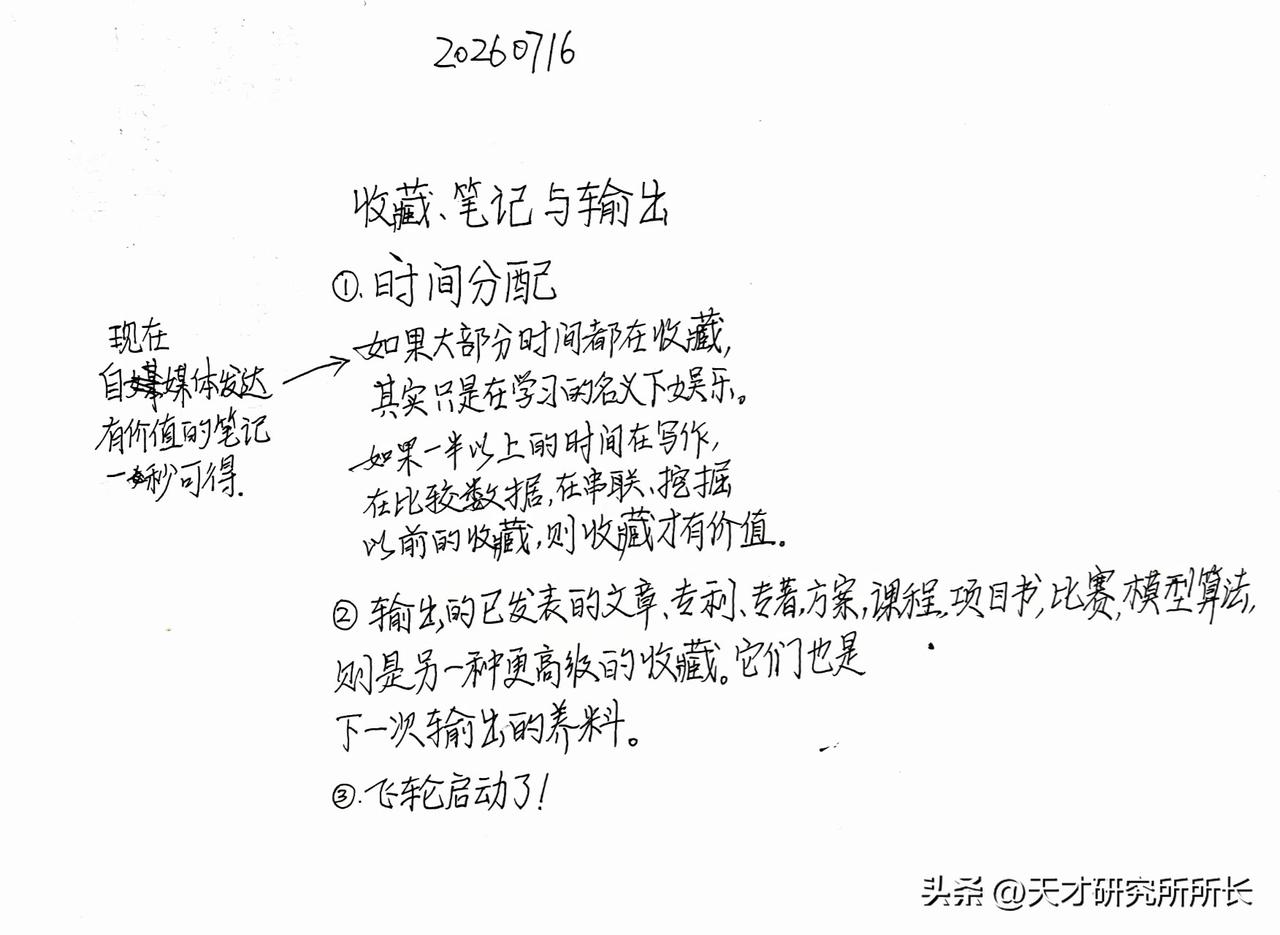 20260716
收藏、笔记与输出
①.时间分配
现在
自媒体发达
有价值的笔记
一秒可得.
如果大部分时间都在收藏,
其实只是在学习的名义下娱乐。
如果一半以上的时间在写作,
在比较数据,在串联、挖掘
以前的收藏,则收藏才有价值。
②输出的已发表的文章、专利、专著,方案,课程,项目书,比赛,模型算法,
则是另一种更高级的收藏。它们也是
下一次输出的养料。
③.飞轮启动了!
头条 @天才研究所所长